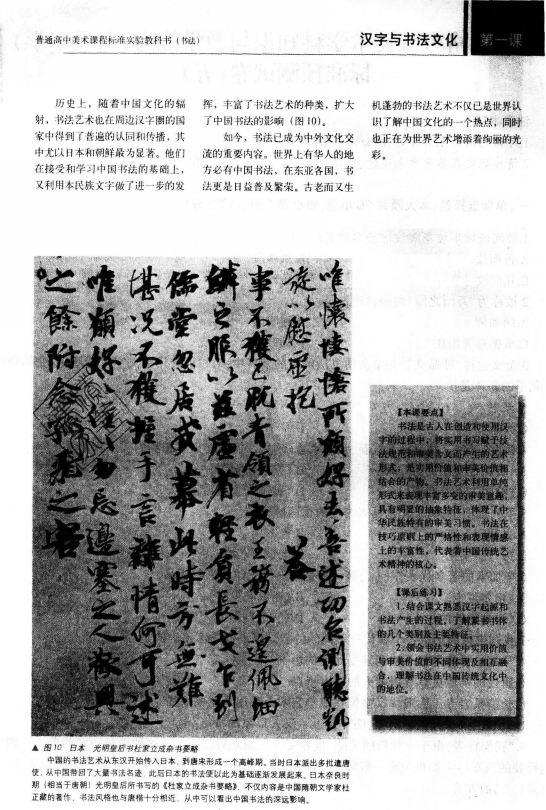 普通高中美术课程标准实验教科书（书法）
汉字与书法文化
第一课
历史上，随着中国文化的辐
射，书法艺术也在周边汉字圈的国
家中得到了普遍的认同和传播，其
中尤以日本和朝鲜最为显著。他们
在接受和学习中国书法的基础上，
又利用本民族文字做了进一步的发
挥，丰富了书法艺术的种类，扩大
了中国书法的影响（图10）。
如今，书法已成为中外文化交
流的重要内容。世界上有华人的地
方必有中国书法，在东亚各国，书
法更是日益普及繁荣。古老而又生
机蓬勃的书法艺术不仅已是世界认
识了解中国文化的一个热点，同时
也正在为世界艺术增添着绚丽的光
彩。
唯懐悽愴所願好去善述功名側聽凱
旋以慰虚抱 答
事不獲已脱青領之衣王務不遑佩細
鱗之服以兹虚省輕負長戈乍到
儒堂忽居戎幕此時方無難
堪况不獲揺手言離情何可述
唯願好住勿忘邊塞之人歡興
之餘附念孤飛之客
【本课要点】
书法是古人在创造和使用汉
字的过程中，将实用书写赋予技
法规范和审美含义而产生的艺术
形式，是实用价值和审美价值相
结合的产物。书法艺术利用单纯
形式来表现丰富多变的审美意趣，
具有明显的抽象特征，体现了中
华民族特有的审美习惯。书法在
技巧原则上的严格性和表现情感
上的丰富性，代表着中国传统艺
术精神的核心。
【课后练习】
1.结合课文熟悉汉字起源和
书法产生的过程，了解篆隶书体
的几个类别及主要特征。
2.领会书法艺术中实用价值
与审美价值的不同体现及相互融
合，理解书法在中国传统文化中
的地位。
▲ 图10 日本 光明皇后书杜家立成杂书要略
中国的书法艺术从东汉开始传入日本，到唐宋形成一个高峰期。当时日本派出多批遣唐
使，从中国带回了大量书法名迹，此后日本的书法便以此为基础逐渐发展起来。日本奈良时
期（相当于唐朝）光明皇后所书写的《杜家立成杂书要略》，不仅内容是中国隋朝文学家杜
正藏的著作，书法风格也与唐楷十分相近，从中可以看出中国书法的深远影响。